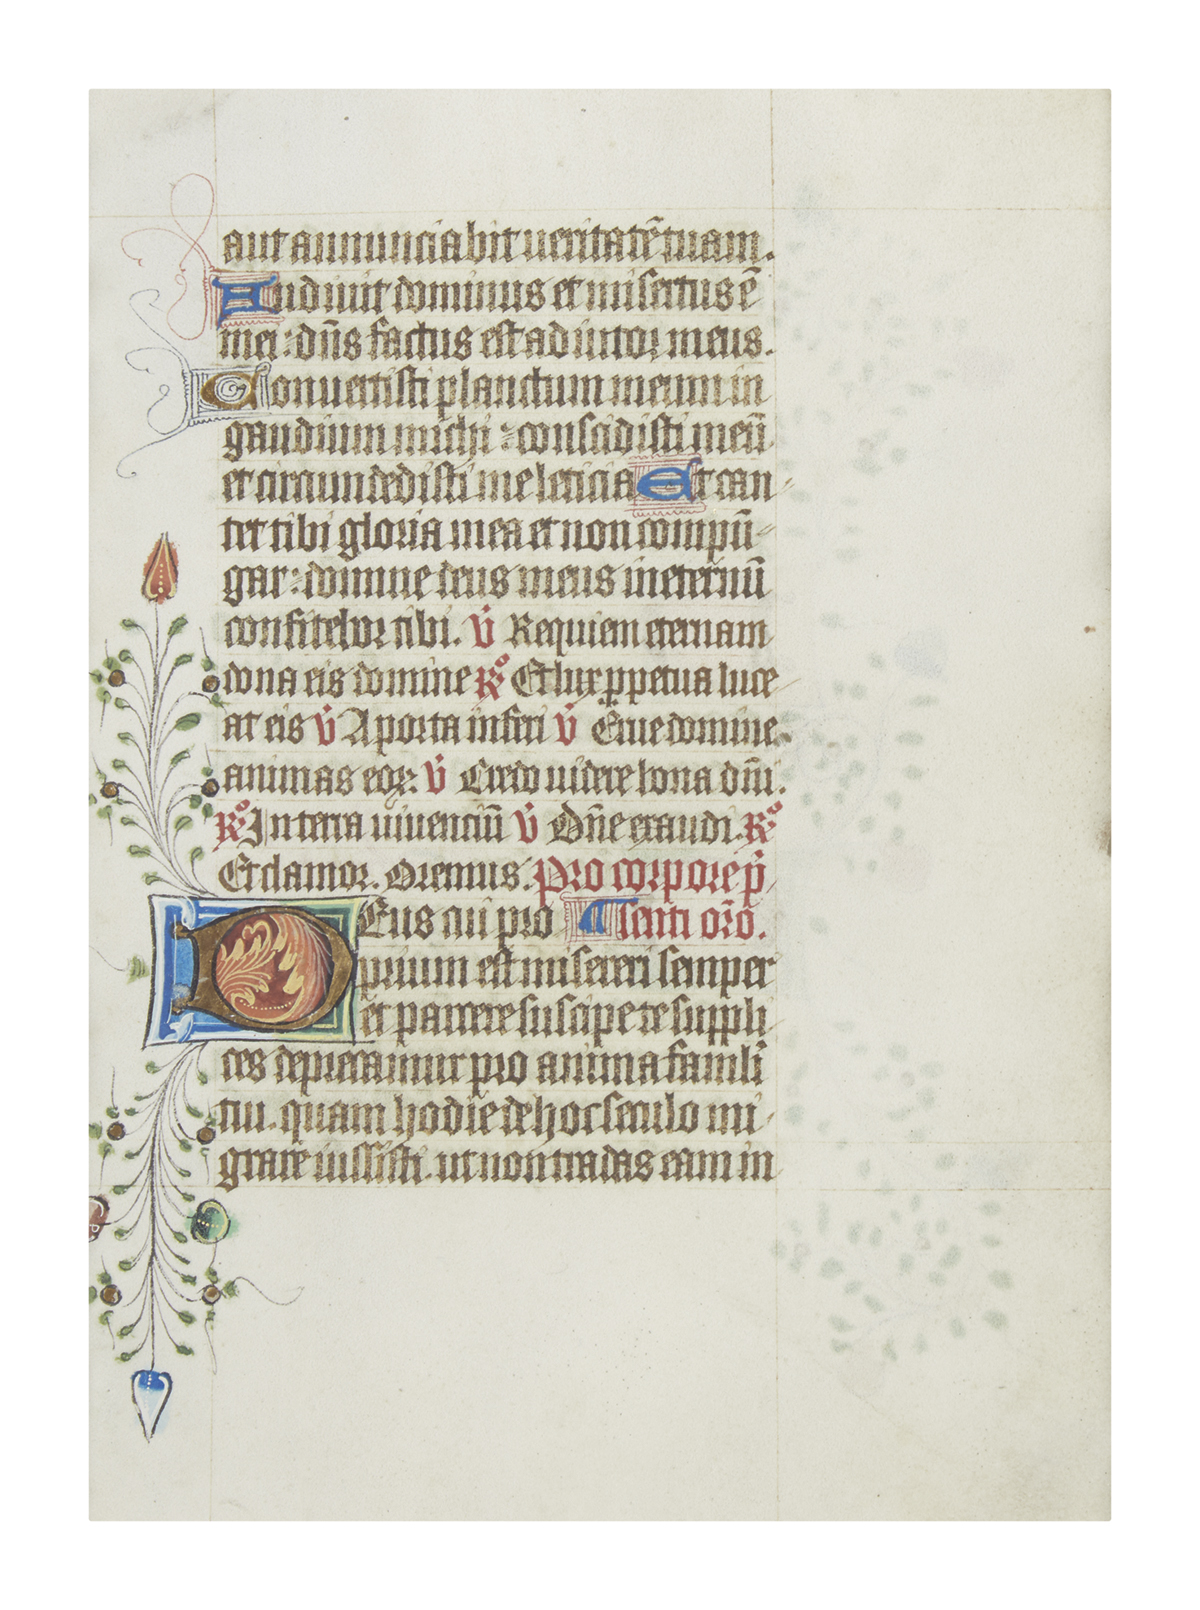 aut annunciabit veritatē tuam.
Audiuit dominus et misertus ē
mei : dn̄s factus est adiutor meus.
Conuertisti planctum meum in
gaudium michi : conscidisti meū
et circumdedisti me leticia Et can
tet tibi gloria mea et non compū
gar : domine deus meus in eternū
confitebor tibi. V̄ Requiem eternam
dona eis domine R̷o Et lux ꝑpetua luce
at eis V̄ A porta inferi V̄ Erue domine
animas eoꝝ. V̄ Credo uidere bona dn̄i.
R̷o In terra uiuenciū V̄ Dn̄e exaudi. R̷o
Et clamor. Oremus. Pro corpore p̄
Eus cui pro senti oro̅.
prium est misereri semper
et parcere suscipe te suppli
ces deprecamur pro anima famli
tui. quam hodie de hoc seculo mi
grare iussisti. ut non tradas eam in